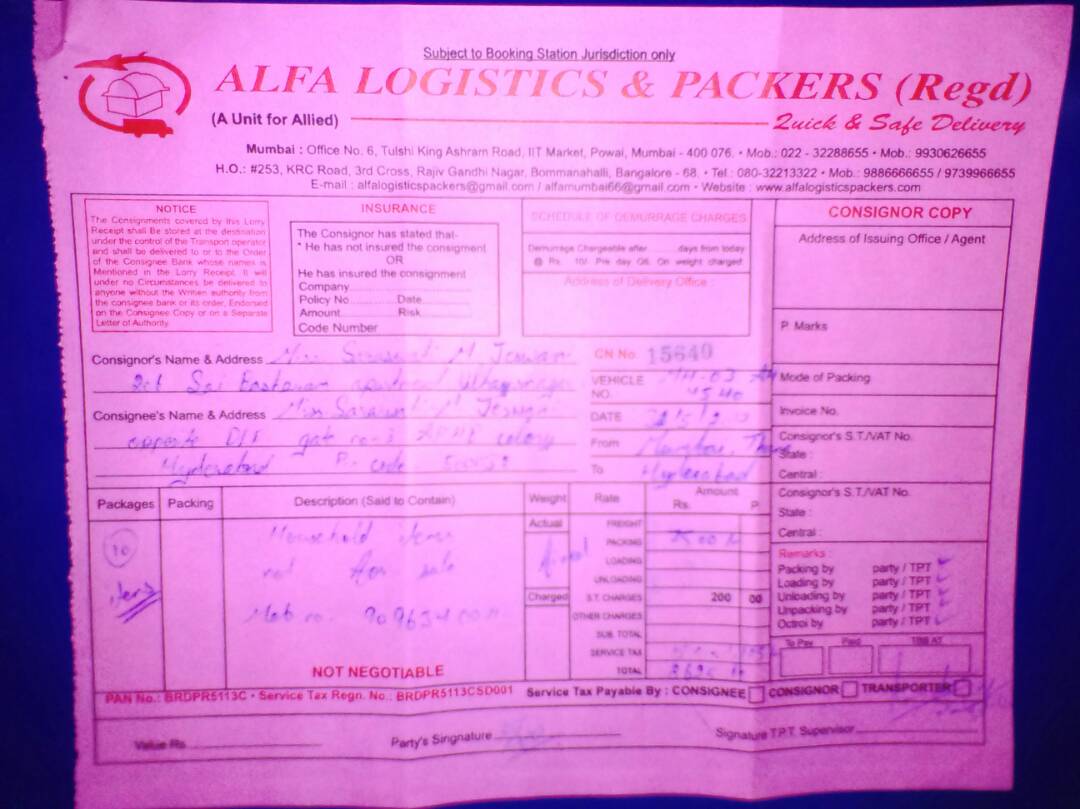 Subject to Booking Station Jurisdiction only
ALFA LOGISTICS & PACKERS (Regd)
(A Unit for Allied)
Quick & Safe Delivery
Mumbai : Office No. 6, Tulshi King Ashram Road, IIT Market, Powai, Mumbai - 400 076. • Mob.: 022 - 32288655 • Mob.: 9930626655
H.O.: #253, KRC Road, 3rd Cross, Rajiv Gandhi Nagar, Bommanahalli, Bangalore - 68. • Tel.: 080-32213322 • Mob.: 9886666655 / 9739966655
E-mail : alfalogisticspackers@gmail.com / alfamumbai66@gmail.com • Website : www.alfalogisticspackers.com
NOTICE
The Consignments covered by this Lorry
Receipt shall Be Stored at the destination
under the control of the Transpon operator
and shall be delivered to or to the Order
of the Consignee Bank whose names is
Mentioned in the Lorry Receipt. It will
under no Circumstances be delivered to
anyone without the Written authority from
the consignee bank or its order, Endorsed
on the Consignee Copy or on a Separate
Letter of Authority.
INSURANCE
The Consignor has stated that-
* He has not insured the consigment
OR
He has insured the consigment
Company
Policy No Date
Amount Risk
Code Number
SCHEDULE OF DEMURRAGE CHARGES
Demurrage Chargeable after days from today
@ Rs. 10/- Pre day Oß. On weight charged
Address of Delivery Office :
CONSIGNOR COPY
Address of Issuing Office / Agent
P. Marks
Mode of Packing
Invoice No.
Consignor's S.T./VAT No.
State :
Central :
Consignor's S.T./VAT No.
State :
Central :
Consignor's Name & Address Miss M
201 Sai apartment
Consignee's Name & Address Miss M
opposite gate no-3 colony
Hyderabad Pin code
CN No. 15640
VEHICLE
NO. 4540
DATE
From
To Hyderabad
Packages Packing Description (Said to Contain) Weight Rate Amount
Rs. P.
Actual
Charged
FREIGHT
PACKING
LOADING
UNLOADING
S.T. CHARGES 200 00
OTHER CHARGES
SUB. TOTAL
SERVICE TAX
TOTAL
10
items
Household items
not for sale
Mob no.
NOT NEGOTIABLE
Remarks :
Packing by party / TPT
Loading by party / TPT
Unloading by party / TPT
Unpacking by party / TPT
Octroi by party / TPT
To Pay Paid
PAN No.: BRDPR5113C • Service Tax Regn. No.: BRDPR5113CSD001 Service Tax Payable By : CONSIGNEE CONSIGNOR TRANSPORTER
Value Rs. Party's Singnature Signature T.P.T. Supervisor